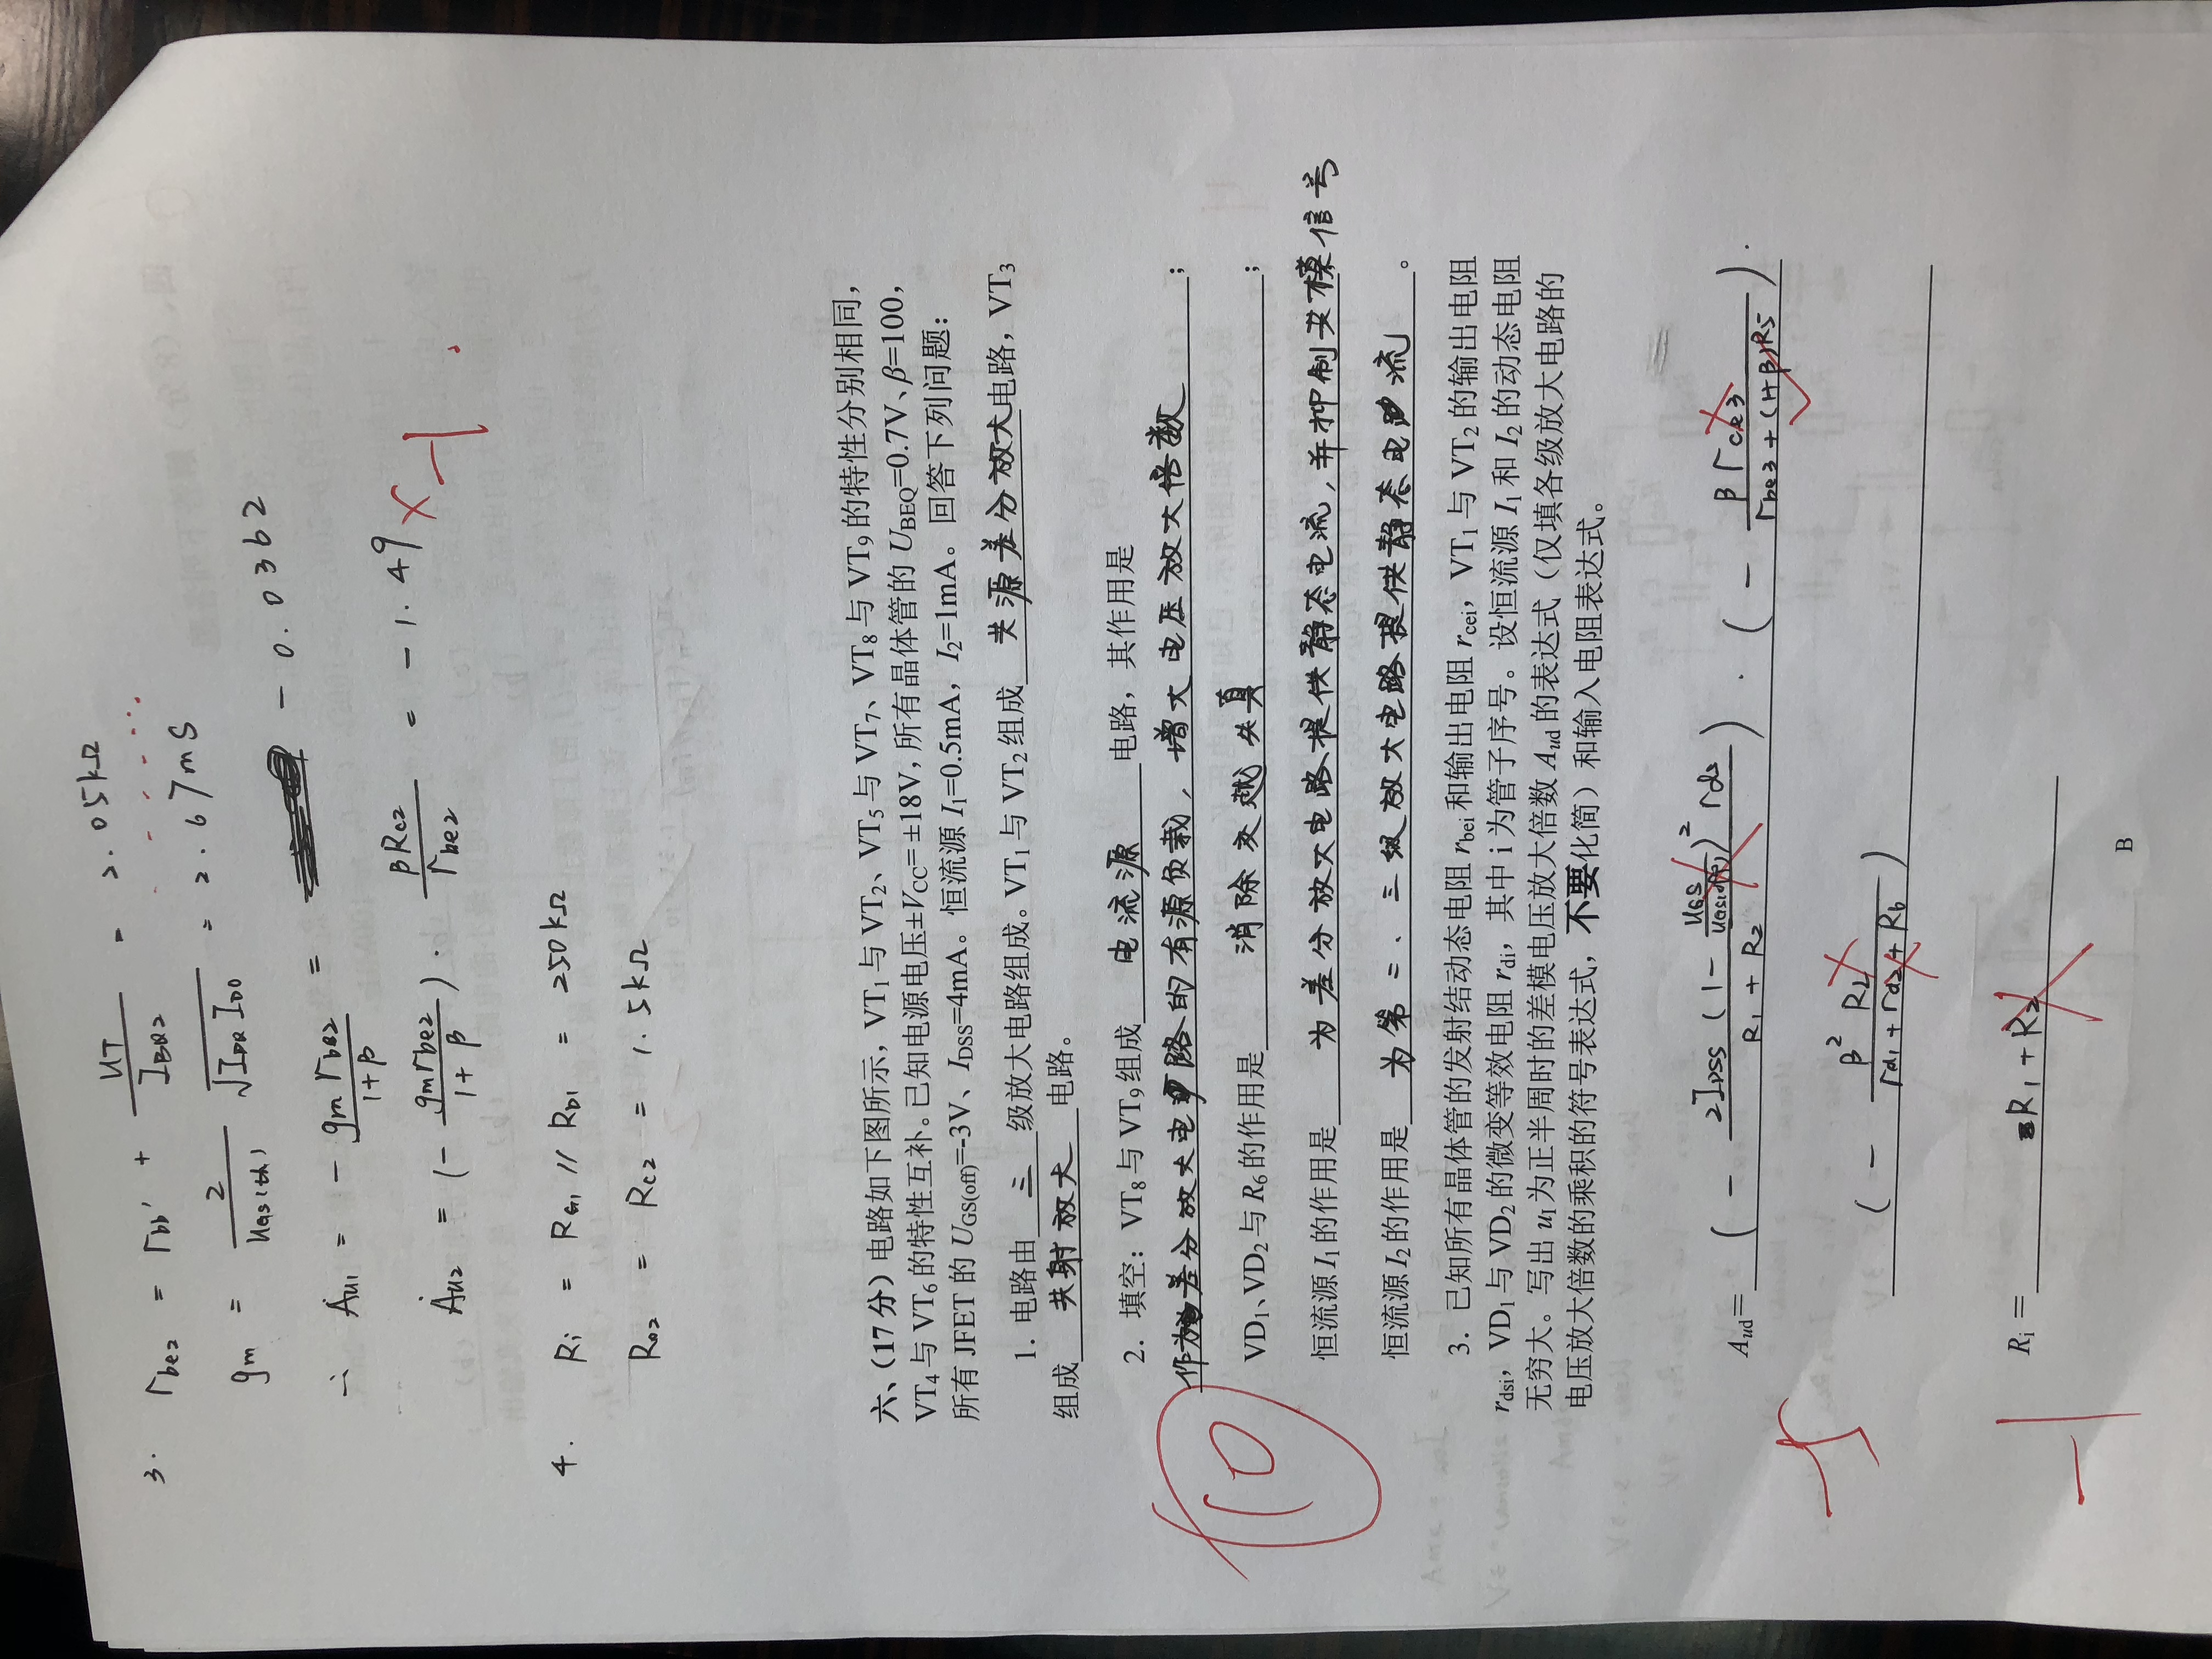 3. rbe2 = rbb' + UT/IBQ2 = 2.05kΩ
gm = 2/UGS(th) √(IDQ IDO) = 2.67mS
∴Ȧu1 = - gm rbe2/(1+β) = - 0.0362
Ȧu2 = (- gm rbe2/(1+β)) · βRc2/rbe2 = -1.49 × -1
4. Ri = RG1 // RD1 = 250kΩ
Ro2 = Rc2 = 1.5kΩ
六、(17分) 电路如下图所示，VT1与VT2、VT5与VT7、VT8与VT9的特性分别相同，
VT4与VT6的特性互补。已知电源电压±VCC= ±18V，所有晶体管的 UBEQ=0.7V、β=100，
所有 JFET 的 UGS(off)=-3V、IDSS=4mA。恒流源 I1=0.5mA，I2=1mA。回答下列问题：
1. 电路由 三 级放大电路组成。VT1与VT2组成 共源差分放大 电路，VT3
组成 共射放大 电路。
2. 填空：VT8与VT9组成 电流源 电路，其作用是
作为差分放大电路的有源负载，增大电压放大倍数 ；
VD1、VD2与R6的作用是 消除交越失真 ；
恒流源I1的作用是 为差分放大电路提供静态电流，并抑制共模信号
恒流源I2的作用是 为第二、三级放大电路提供静态电流 。
10
3. 已知所有晶体管的发射结动态电阻 rbei 和输出电阻 rcei，VT1与VT2的输出电阻
rdsi，VD1与VD2的微变等效电阻 rdi，其中 i 为管子序号。设恒流源 I1和 I2的动态电阻
无穷大。写出 uI为正半周时的差模电压放大倍数 Aud的表达式（仅填各级放大电路的
电压放大倍数的乘积的符号表达式，不要化简）和输入电阻表达式。
Aud= (- 2IDSS (1- UGS/UGS(off))² rds/(R1 + R2)) · (- β rce3/(rbe3 + (1+β)R5)) ·
-5
(- β² RL/(rd1 + rd2 + R6))
Ri = R1 + R2
-1
B